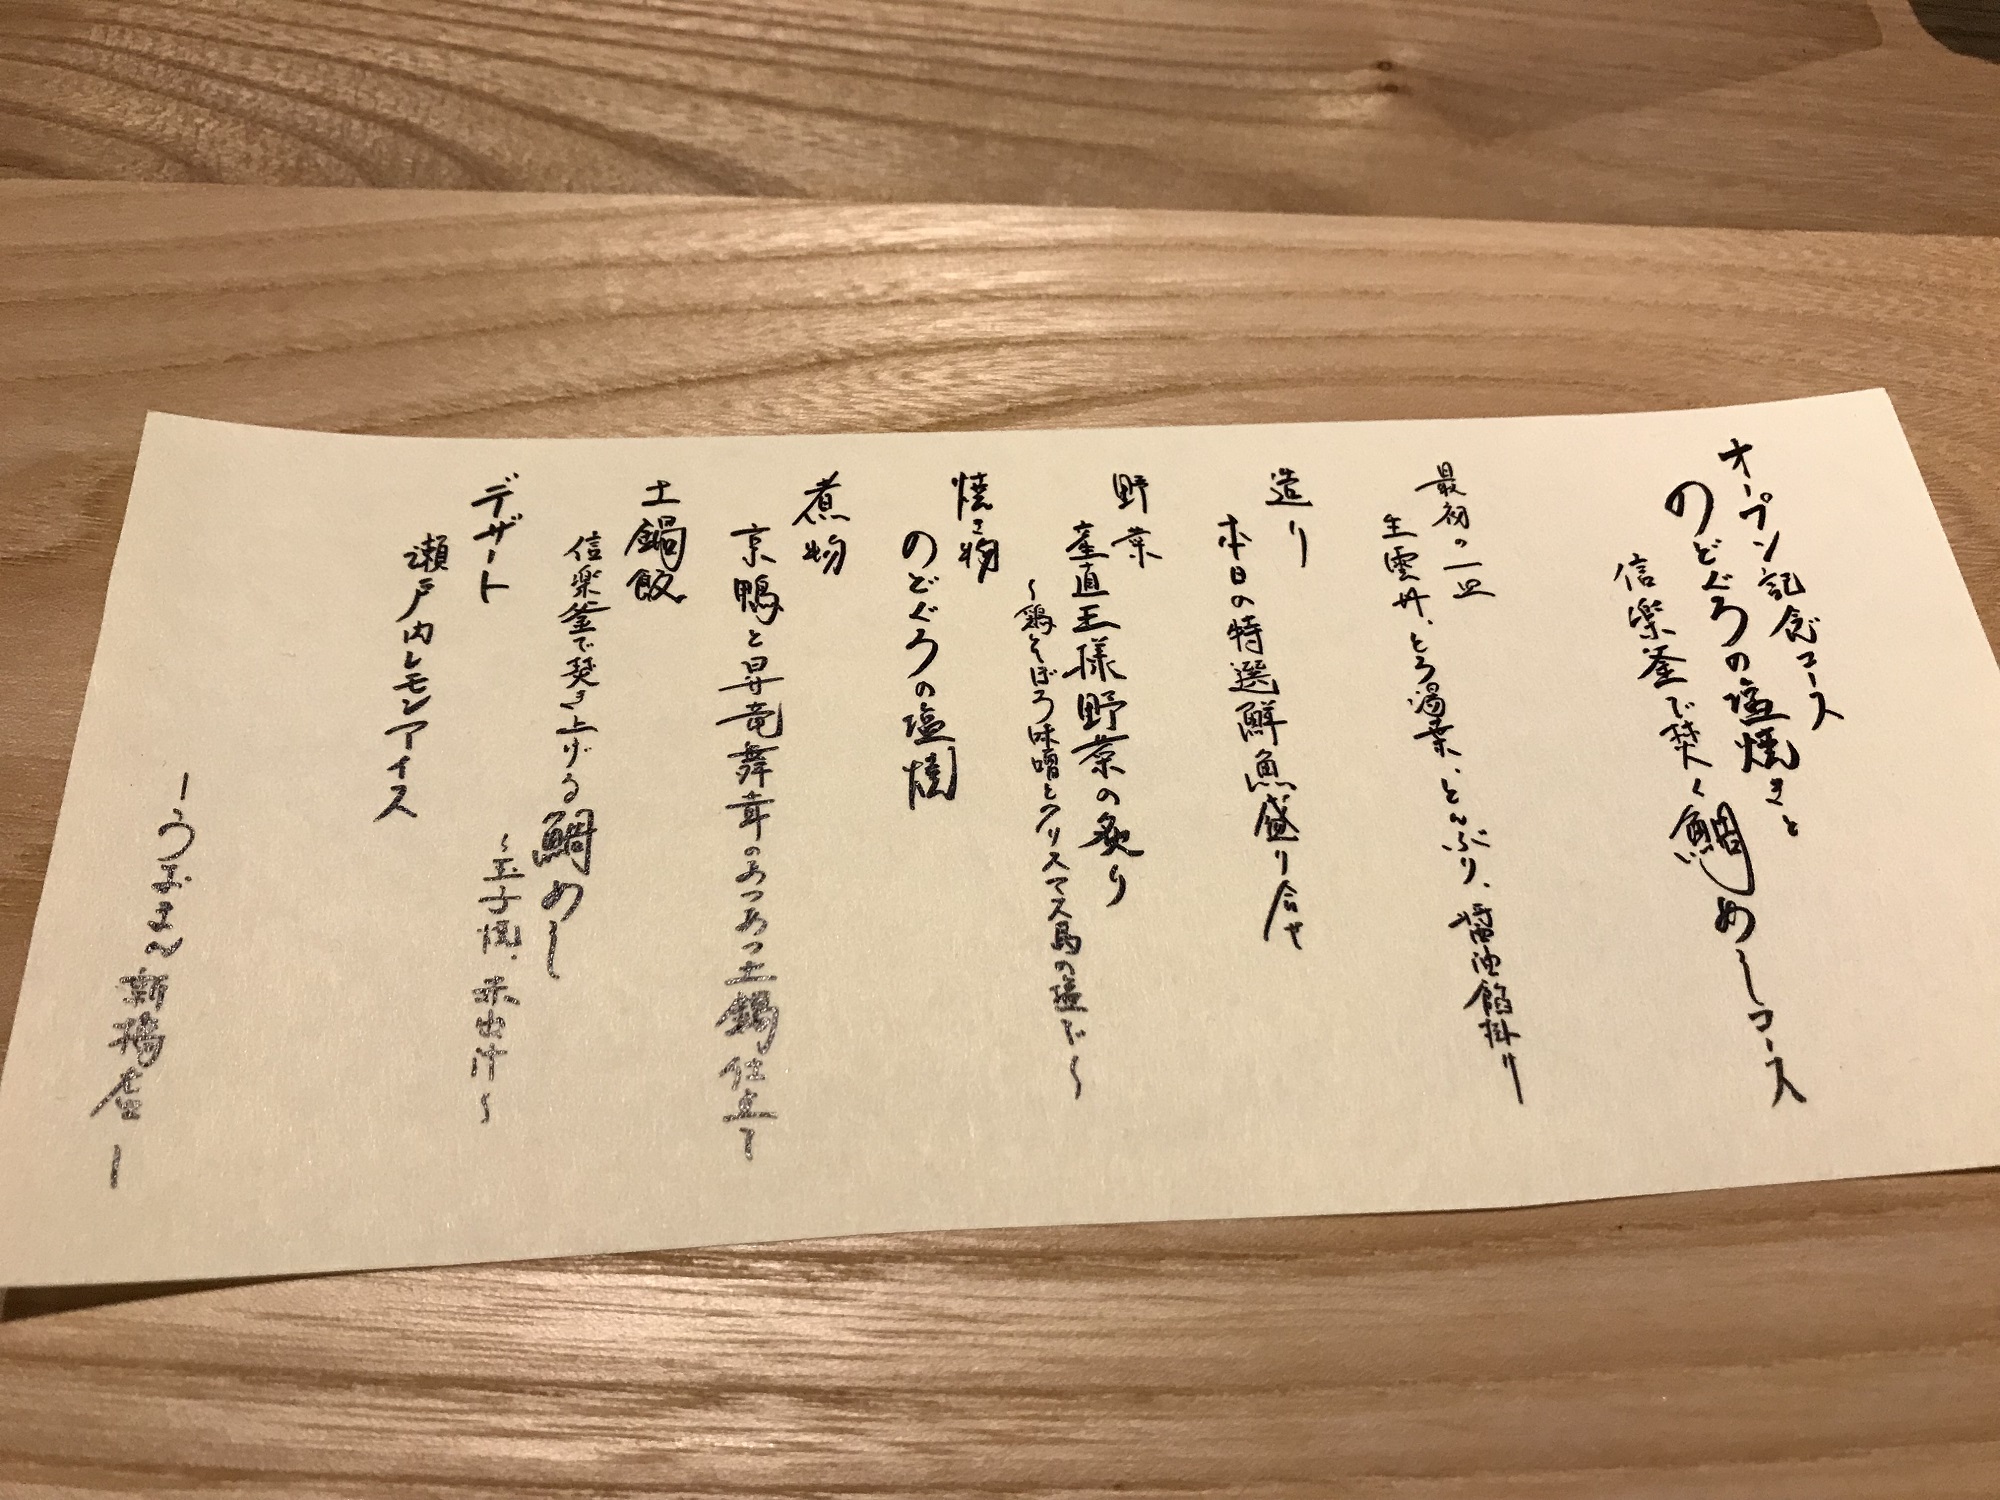 オープン記念コース
のどぐろの塩焼きと
信楽釜で焚く鯛めしコース
最初の一皿
生雲丹、とろ湯葉、とんぶり、醤油餡掛け
造り
本日の特選鮮魚盛り合せ
野菜
産直王様野菜の炙り
～鶏そぼろ味噌とクリスマス島の塩で～
焼き物
のどぐろの塩焼
煮物
京鴨と昇竜舞茸のあつあつ土鍋仕立て
土鍋飯
信楽釜で焚き上げる鯛めし
～玉子焼、赤出汁～
デザート
瀬戸内レモンアイス
ーうおまん新橋店ー